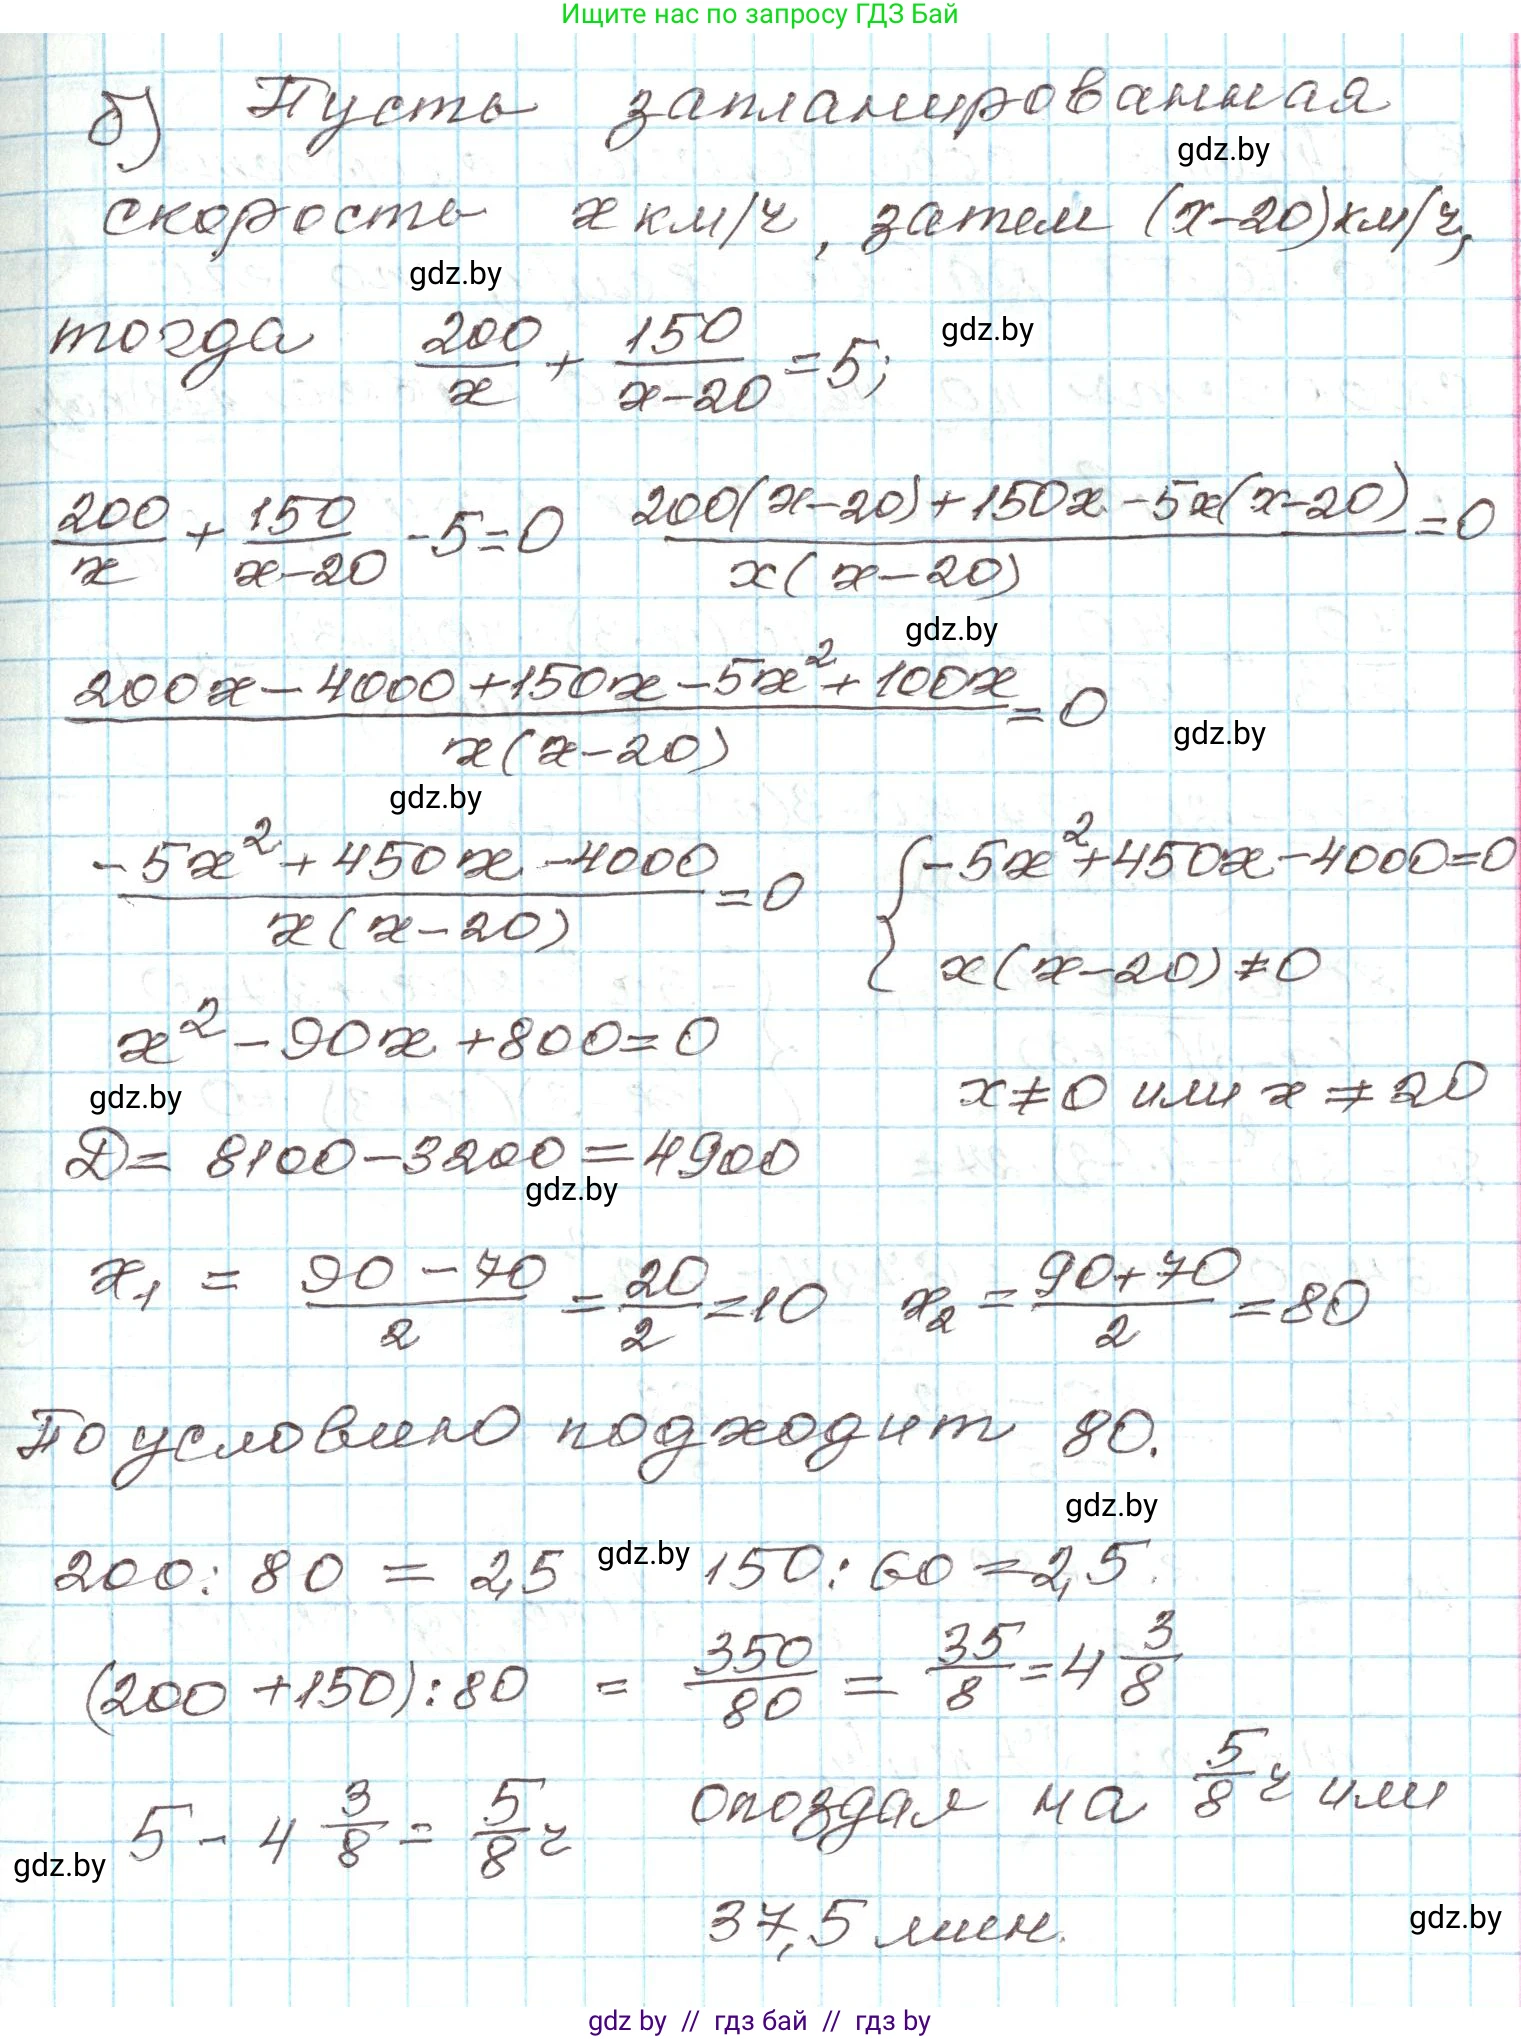 Ищите нас по запросу ГДЗ Бай
б) Пусть запланированная
gdz.by
скорость x км/ч, затем (x-20) км/ч,
gdz.by
тогда 200/x + 150/(x-20) = 5;
gdz.by
200/x + 150/(x-20) - 5 = 0   (200(x-20) + 150x - 5x(x-20))/(x(x-20)) = 0
gdz.by
(200x - 4000 + 150x - 5x² + 100x)/(x(x-20)) = 0
gdz.by
gdz.by
(-5x² + 450x - 4000)/(x(x-20)) = 0   { -5x² + 450x - 4000 = 0
x(x-20) ≠ 0
x² - 90x + 800 = 0
gdz.by
x ≠ 0 или x ≠ 20
D = 8100 - 3200 = 4900
gdz.by
x₁ = (90 - 70)/2 = 20/2 = 10   x₂ = (90 + 70)/2 = 80
По условию подходит 80.
gdz.by
200 : 80 = 2,5   gdz.by   150 : 60 = 2,5.
(200 + 150) : 80 = 350/80 = 35/8 = 4 3/8
5 - 4 3/8 = 5/8 ч   опоздал на 5/8 ч или
gdz.by
37,5 мин.
gdz.by
gdz.by // гдз бай // гдз by